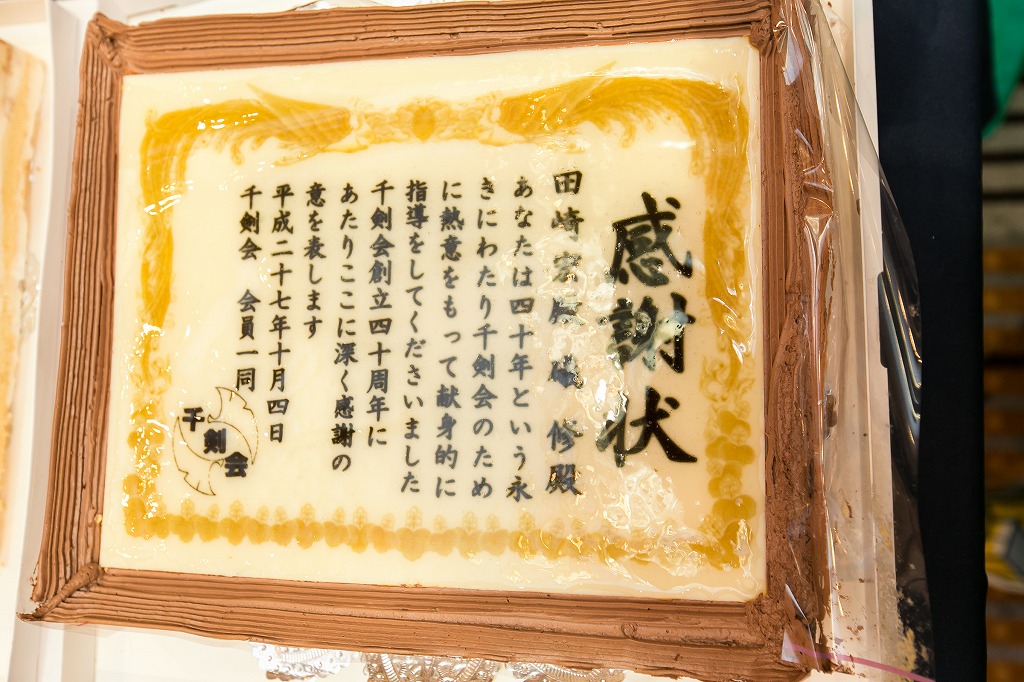 感謝状
田崎 修殿
あなたは四十年という永
きにわたり千剣会のため
に熱意をもって献身的に
指導をしてくださいました
千剣会創立四十周年に
あたりここに深く感謝の
意を表します
平成二十七年十月四日
千剣会 会員一同
千剣会